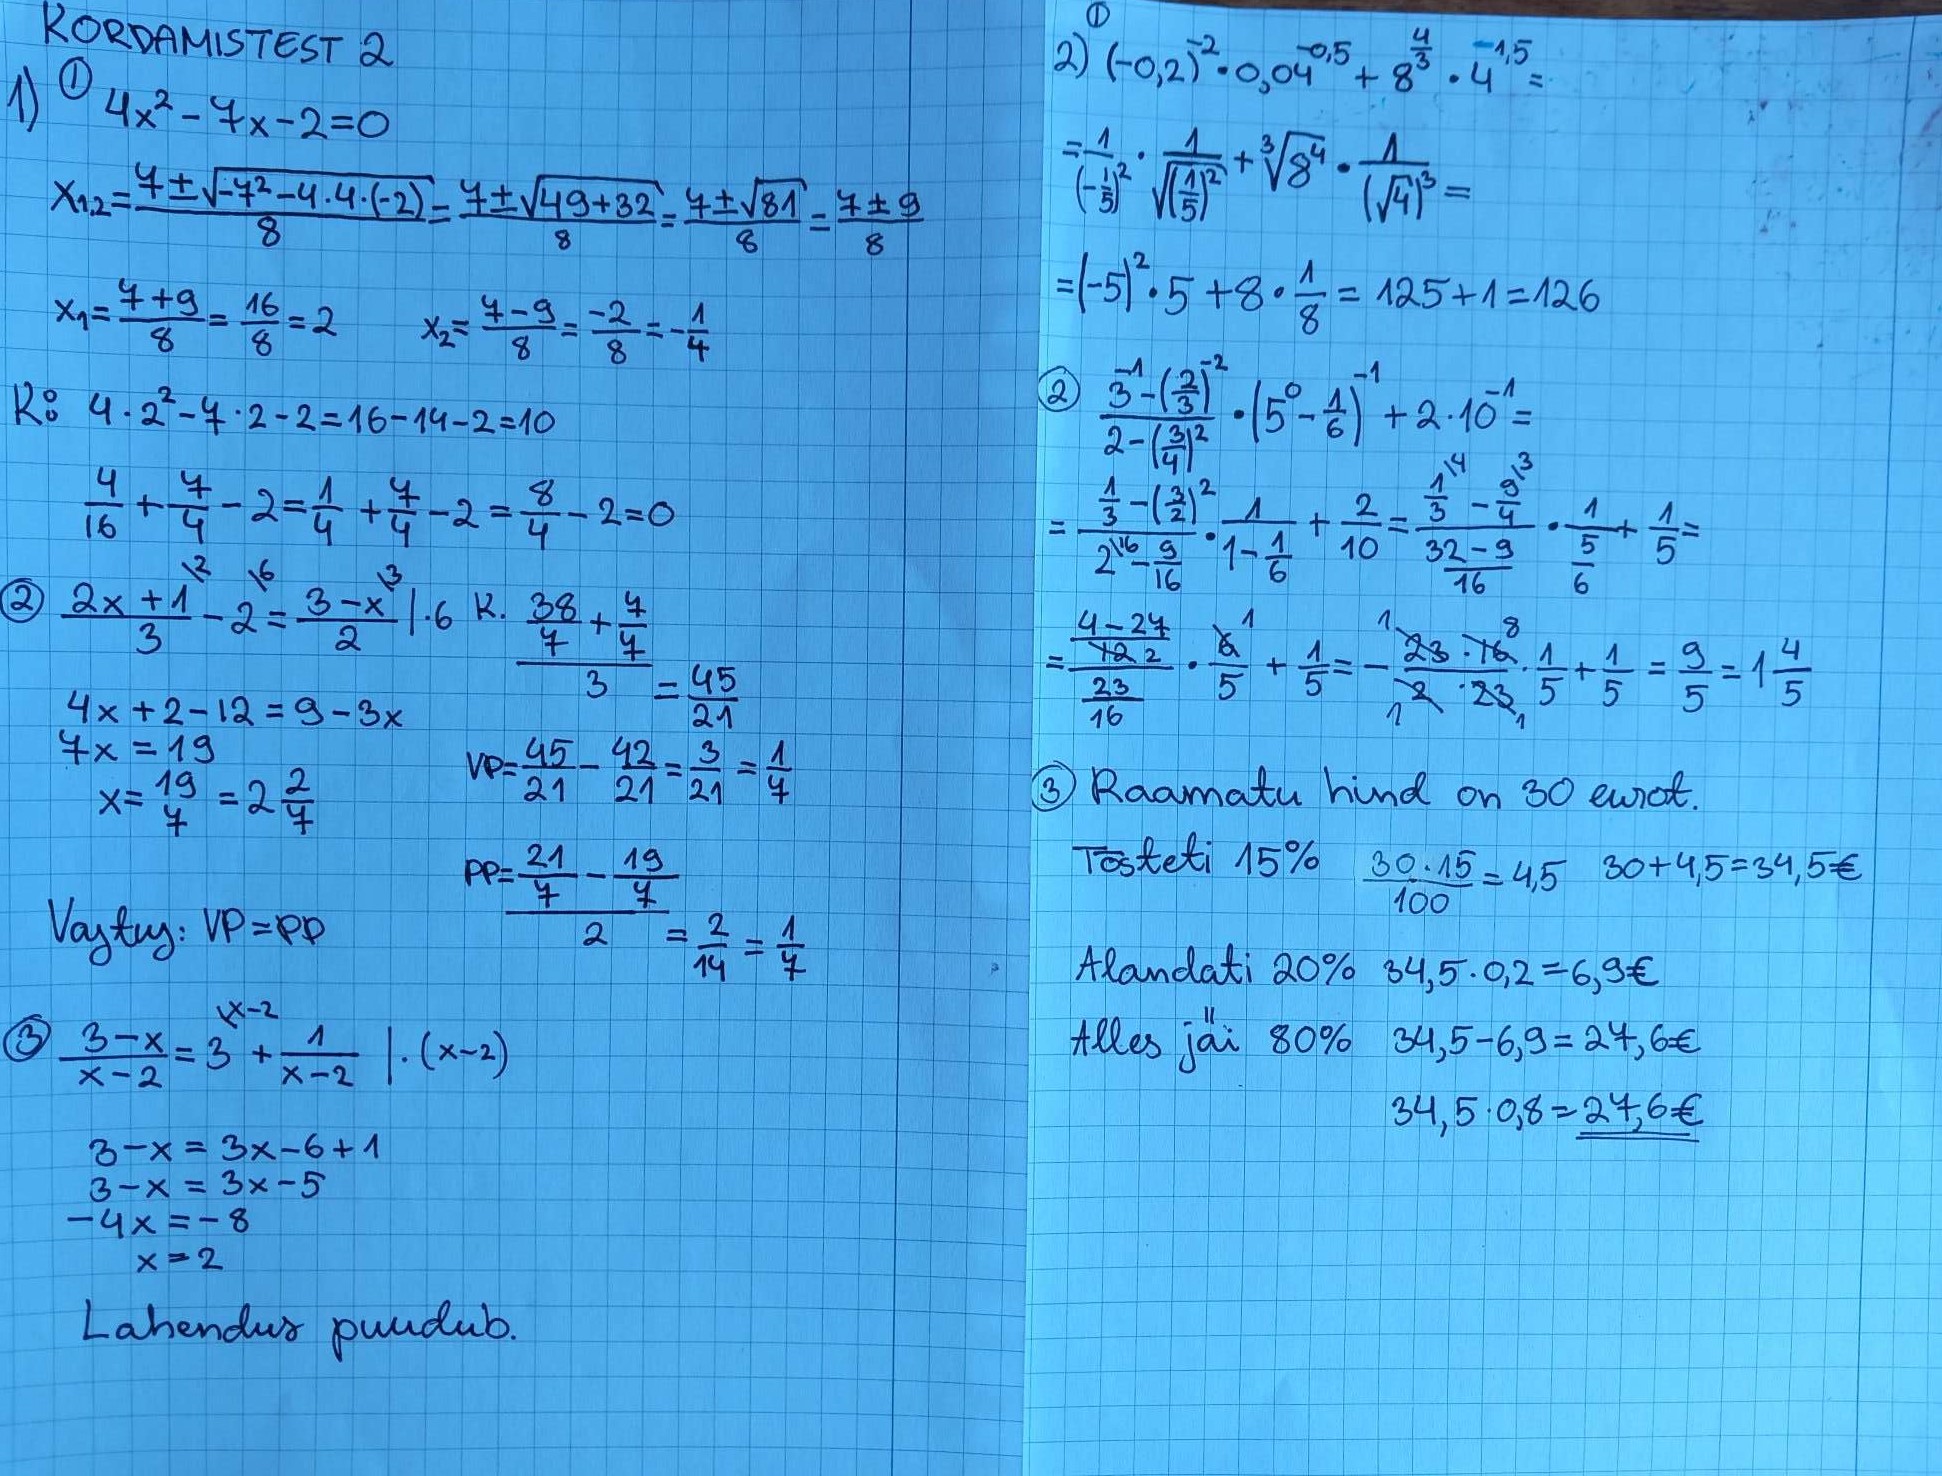 KORDAMISTEST 2
1) ① 4x² - 7x - 2 = 0
x₁,₂ = (7 ± √(-7² - 4·4·(-2)))/8 = (7 ± √(49+32))/8 = (7 ± √81)/8 = (7 ± 9)/8
x₁ = (7+9)/8 = 16/8 = 2  x₂ = (7-9)/8 = -2/8 = -1/4
K: 4·2² - 7·2 - 2 = 16 - 14 - 2 = 10
4/16 + 7/4 - 2 = 1/4 + 7/4 - 2 = 8/4 - 2 = 0
② (2x+1)/3 \2 - 2 \6 = (3-x)/2 \3 | ·6
4x + 2 - 12 = 9 - 3x
7x = 19
x = 19/7 = 2 2/7
K. (38/7 + 7/7)/3 = 45/21
VP = 45/21 - 42/21 = 3/21 = 1/7
PP = (21/7 - 19/7)/2 = 2/14 = 1/7
Vastus: VP = PP
③ (3-x)/(x-2) = 3 \x-2 + 1/(x-2) | ·(x-2)
3 - x = 3x - 6 + 1
3 - x = 3x - 5
-4x = -8
x = 2
Lahendus puudub.
2) ① (-0,2)⁻² · 0,04^(-0,5) + 8^(4/3) · 4^(-1,5) =
= 1/(-1/5)² · 1/√((1/5)²) + ∛(8⁴) · 1/(√4)³ =
= (-5)² · 5 + 8 · 1/8 = 125 + 1 = 126
② (3⁻¹ - (2/3)⁻²)/(2 - (3/4)²) · (5⁰ - 1/6)⁻¹ + 2·10⁻¹ =
= (1/3 - (3/2)²)/(2 \16 - 9/16) · 1/(1 - 1/6) + 2/10 = (1/3 \4 - 9/4 \3)/((32-9)/16) · 1/(5/6) + 1/5 =
= ((4-27)/12 2)/(23/16) · 6 1/5 + 1/5 = - (1 23 · 16 8)/(1 2 · 23 1) · 1/5 + 1/5 = 9/5 = 1 4/5
③ Raamatu hind on 30 eurot.
Tõsteti 15% (30·15)/100 = 4,5 30 + 4,5 = 34,5€
Alandati 20% 34,5·0,2 = 6,9€
Alles jäi 80% 34,5 - 6,9 = 27,6€
34,5·0,8 = 27,6€